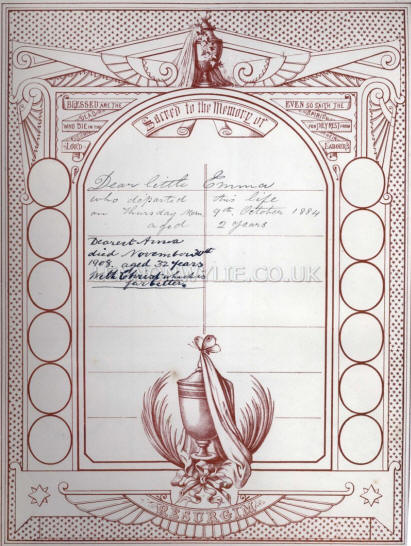 BLESSED ARE THE
DEAD
WHO DIE IN THE
LORD
EVEN SO SAITH THE
SPIRIT
FOR THEY REST FROM
LABOURS
Sacred to the Memory of
Dear little Emma
who departed this life
on Thursday Morn 9th October 1884
aged 2 years
Dearest Anna
died November 30th
1908, aged 32 years
With Christ which is
far better.
WYLIE.CO.UK
RESURGIM